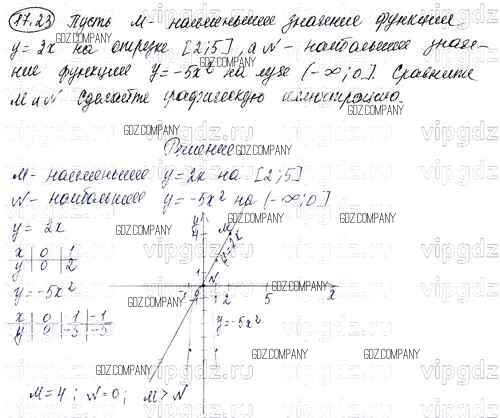 17.23 Пусть M - наименьшее значение функции
y = 2x на отрезке [2;5], а N - наибольшее значе-
ние функции y = -5x² на луче (-∞;0]. Сравните
M и N Сделайте графическую иллюстрацию.
Решение
M - наименьшее y = 2x на [2;5]
N - наибольшее y = -5x² на (-∞;0]
y = 2x
x 0 1
y 0 2
y = -5x²
x 0 1 -1
y 0 -5 -5
y
4
M
y = 2x
1
N
-1 0 1 2 5 x
y = -5x²
M = 4; N = 0; M > N
GDZ.COMPANY
vipgdz.ru